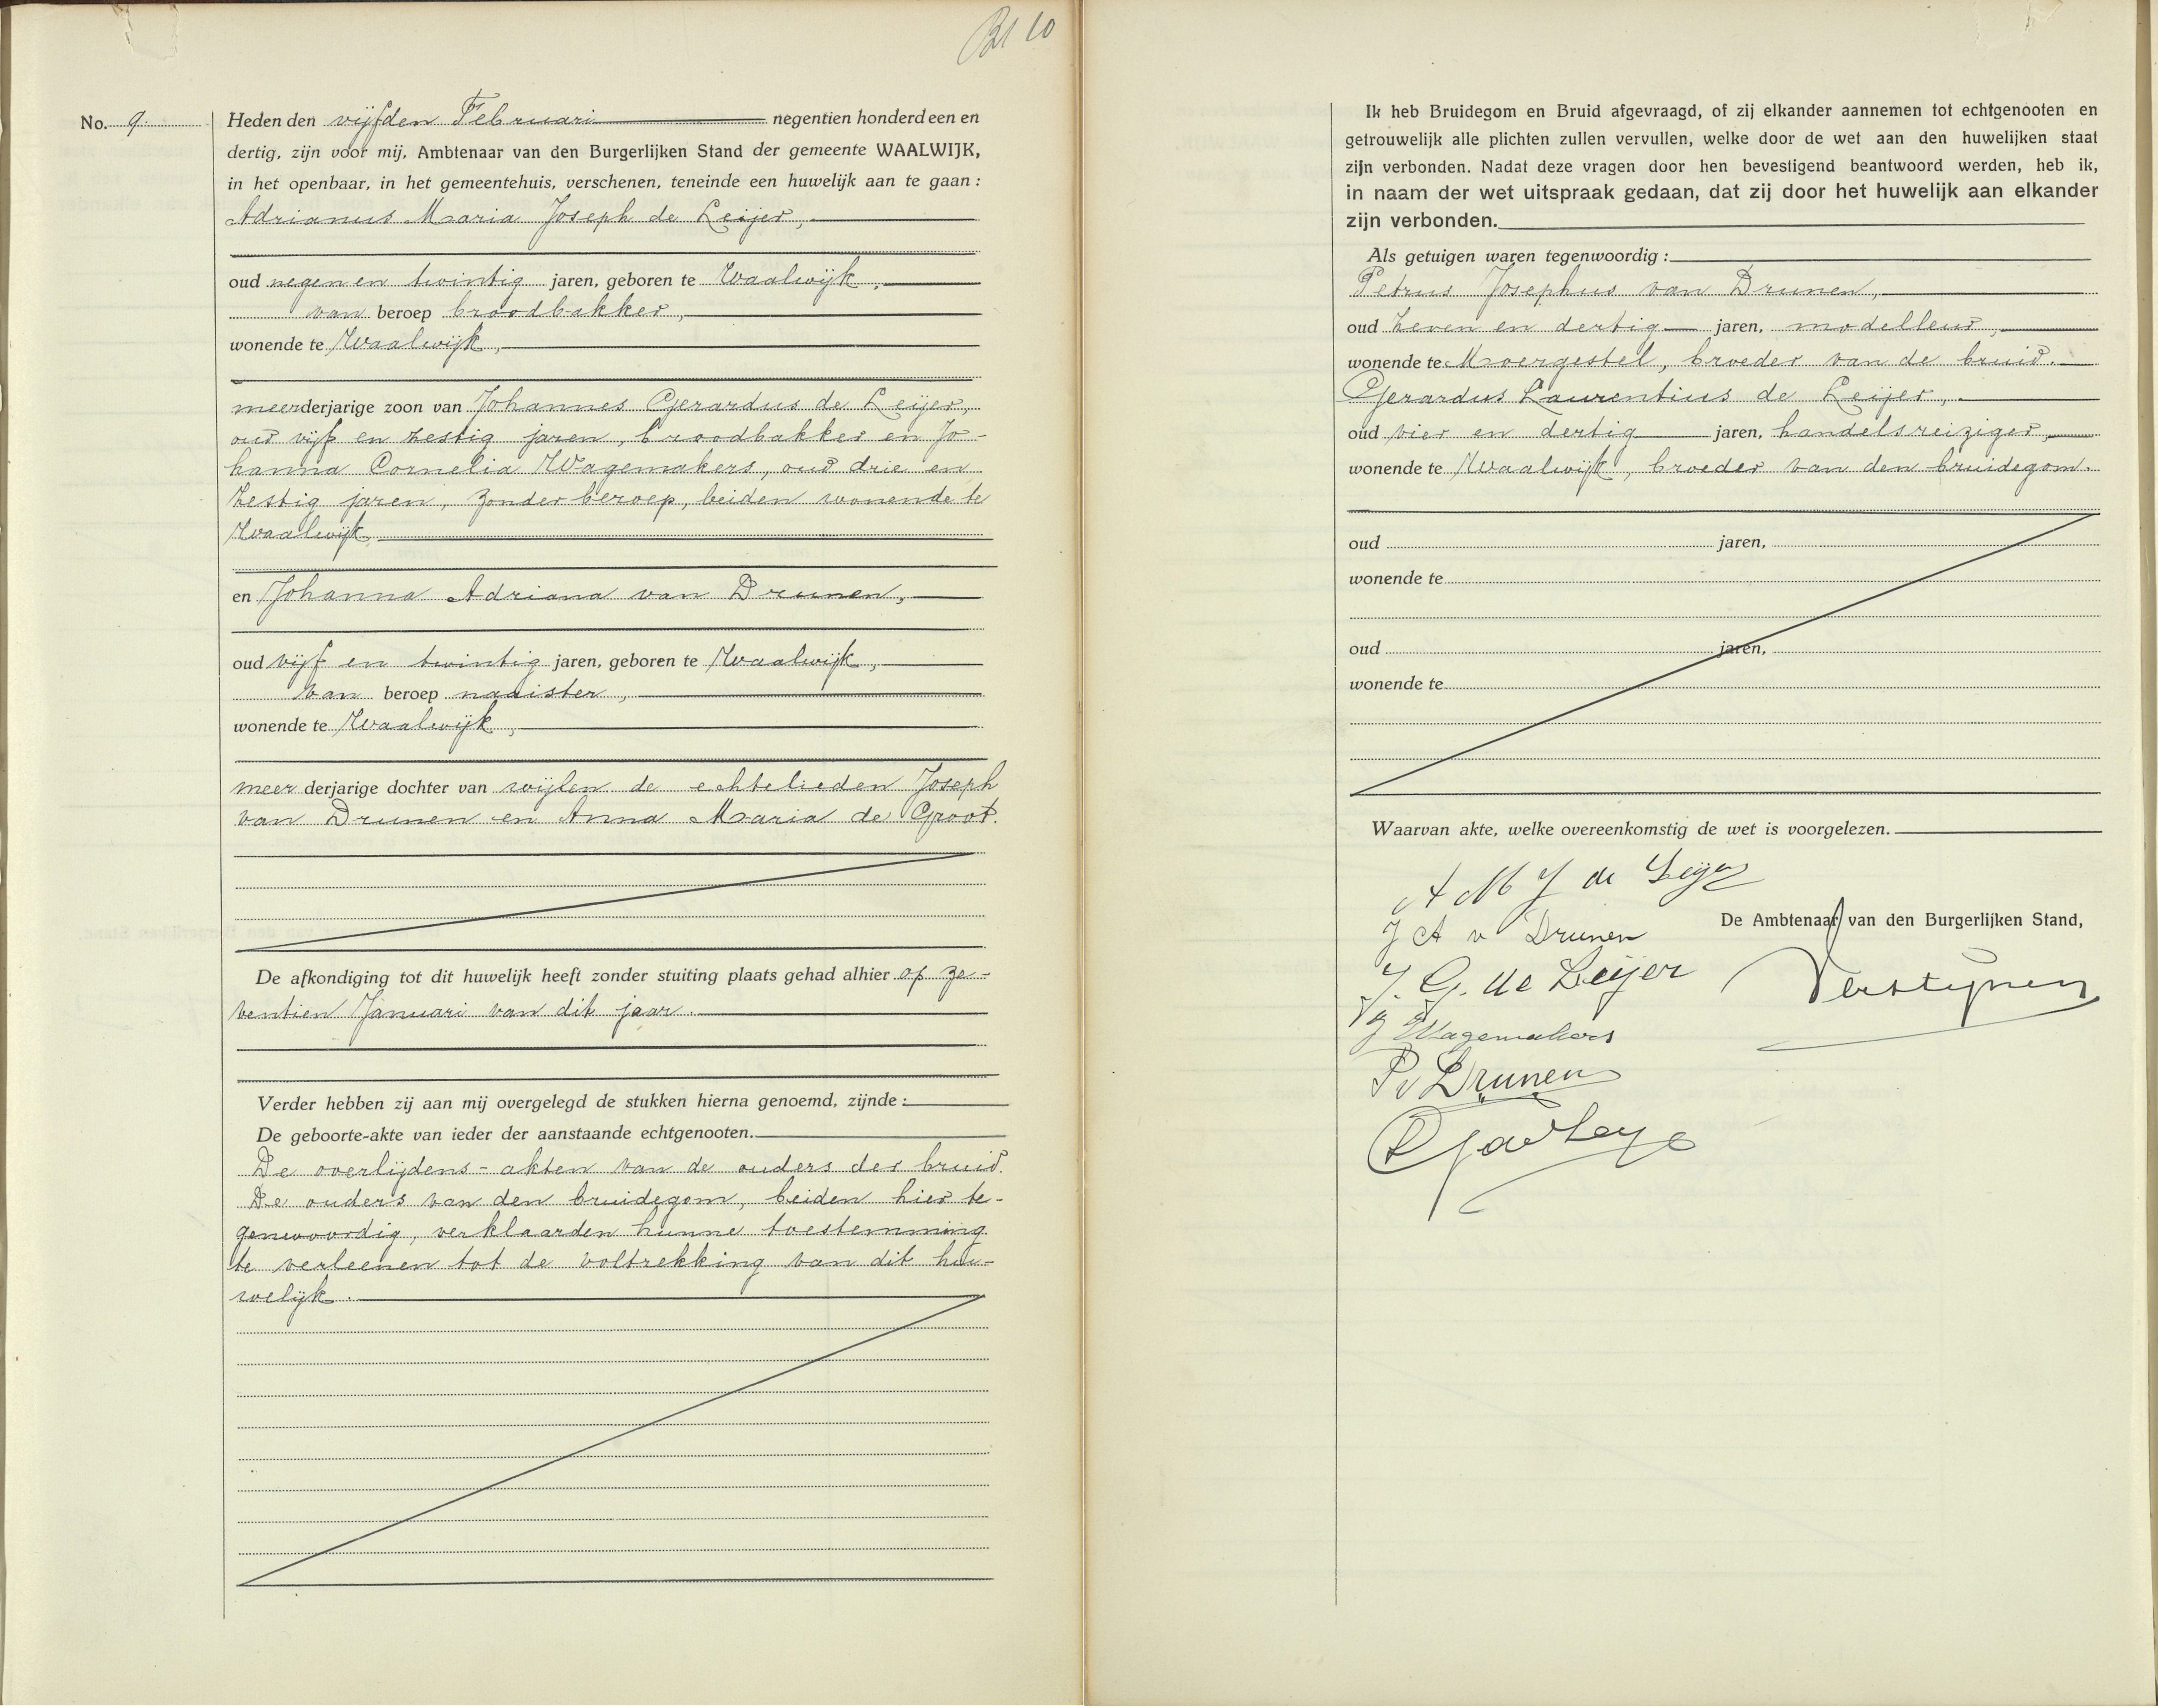 Bl 10
No. 9.
Heden den vijfden Februari negentien honderd een en
dertig, zijn voor mij, Ambtenaar van den Burgerlijken Stand der gemeente WAALWIJK,
in het openbaar, in het gemeentehuis, verschenen, teneinde een huwelijk aan te gaan :
Adrianus Maria Joseph de Leijer,
oud negen en twintig jaren, geboren te Waalwijk,
van beroep broodbakker,
wonende te Waalwijk,
meerderjarige zoon van Johannes Gerardus de Leijer,
oud vijf en zestig jaren, broodbakker en Jo-
hanna Cornelia Wagemakers, oud drie en
zestig jaren, zonder beroep, beiden wonende te
Waalwijk
en Johanna Adriana van Drunen,
oud vijf en twintig jaren, geboren te Waalwijk,
van beroep naaister,
wonende te Waalwijk,
meerderjarige dochter van wijlen de echtelieden Joseph
van Drunen en Anna Maria de Groot.
De afkondiging tot dit huwelijk heeft zonder stuiting plaats gehad alhier op ze-
ventien Januari van dit jaar.
Verder hebben zij aan mij overgelegd de stukken hierna genoemd, zijnde :
De geboorte-akte van ieder der aanstaande echtgenooten.
De overlijdens-akten van de ouders der bruid.
De ouders van den bruidegom, beiden hier te-
genwoordig, verklaarden hunne toestemming
te verleenen tot de voltrekking van dit hu-
welijk.
Ik heb Bruidegom en Bruid afgevraagd, of zij elkander aannemen tot echtgenooten en
getrouwelijk alle plichten zullen vervullen, welke door de wet aan den huwelijken staat
zijn verbonden. Nadat deze vragen door hen bevestigend beantwoord werden, heb ik,
in naam der wet uitspraak gedaan, dat zij door het huwelijk aan elkander
zijn verbonden.
Als getuigen waren tegenwoordig :
Petrus Josephus van Drunen,
oud zeven en dertig jaren, modelleur,
wonende te Moergestel, broeder van de bruid.
Gerardus Laurentius de Leijer,
oud vier en dertig jaren, handelsreiziger,
wonende te Waalwijk, broeder van den bruidegom.
oud jaren,
wonende te
oud jaren,
wonende te
Waarvan akte, welke overeenkomstig de wet is voorgelezen.
A M J de Leijer
De Ambtenaar van den Burgerlijken Stand,
J A v Drunen
J. G. de Leijer
Verstijnen
Wagemakers
P v Drunen